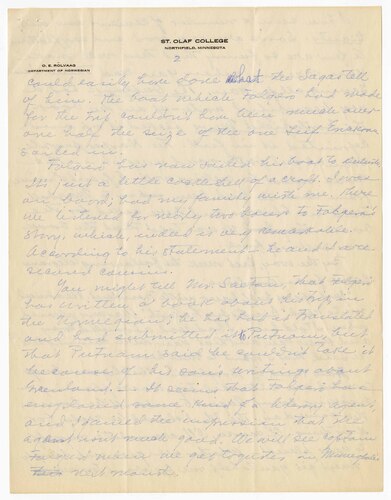 ST. OLAF COLLEGE
NORTHFIELD, MINNESOTA
O. E. ROLVAAG
DEPARTMENT OF NORWEGIAN
2
could easily have done what the Sagas tell
of him. The boat which Folgerø had made
for the trip couldn't have been much over
one half the size of the one Leif Erickson
sailed in.
Folgerø has now sailed his boat to Duluth.
It's just a little cockle shell of a craft. I was
on board, had my family with me. There
we listened for nearly two hours to Folgerø's
story, which indeed is very remarkable.
According to his statement he and I are
second cousins.
You might tell Mr. Saxton, that Folgerø
has written a book about his trip, in
the Norwegian; he has had it translated
and had submitted it to Putnam, but
that Putnam said he couldn't take it
because of his son's writings about
Greenland. — It seems that Folgerø has
employed some kind of a literary agent,
and I gained the impression that the
agent isn't much good. We will see
again when we get together in Minneapolis
next month.